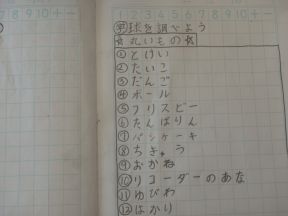 1 2 3 4 5 6 7 8 9 10 + −
㋕球を調べよう
☆丸いもの☆
①とけい
②たいこ
③だんご
④ボール
⑤フリスビー
⑥たんばりん
⑦パンケーキ
⑧ちきゅう
⑨おかね
⑩リコーダーのあな
⑪ゆびわ
⑫はかり